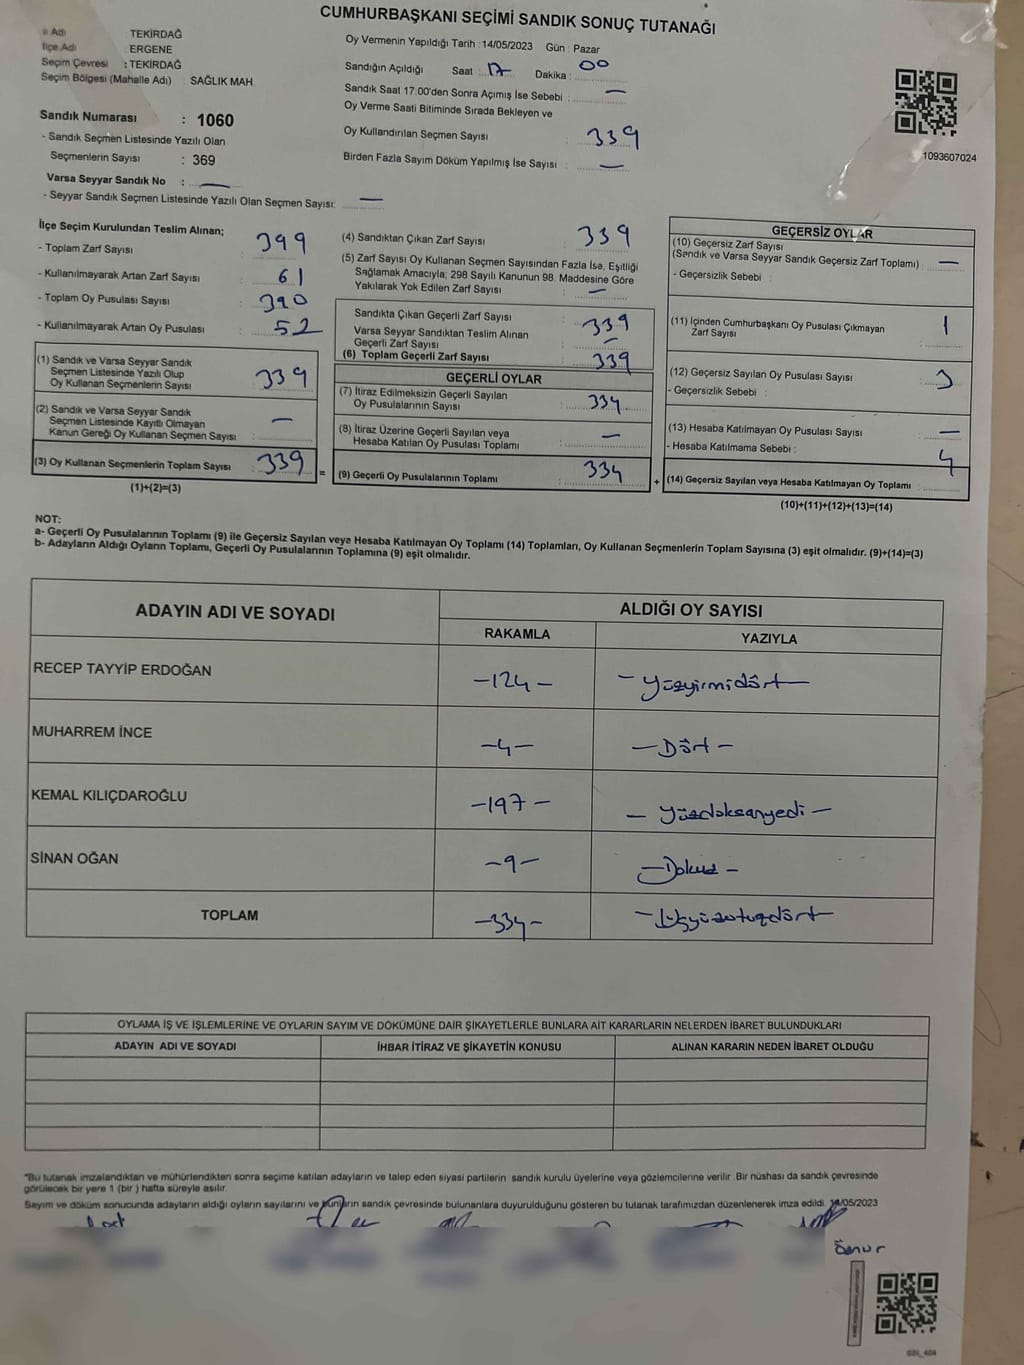 CUMHURBAŞKANI SEÇİMİ SANDIK SONUÇ TUTANAĞI
İl Adı TEKİRDAĞ
İlçe Adı ERGENE
Seçim Çevresi : TEKİRDAĞ
Seçim Bölgesi (Mahalle Adı) : SAĞLIK MAH.
Sandık Numarası : 1060
- Sandık Seçmen Listesinde Yazılı Olan
Seçmenlerin Sayısı : 369
Varsa Seyyar Sandık No : —
- Seyyar Sandık Seçmen Listesinde Yazılı Olan Seçmen Sayısı: —
Oy Vermenin Yapıldığı Tarih : 14/05/2023 Gün : Pazar
Sandığın Açıldığı Saat : 17 Dakika : 00
Sandık Saat 17:00'den Sonra Açımış İse Sebebi : —
Oy Verme Saati Bitiminde Sırada Bekleyen ve
Oy Kullandırılan Seçmen Sayısı : 339
Birden Fazla Sayım Döküm Yapılmış İse Sayısı : —
1093607024
İlçe Seçim Kurulundan Teslim Alınan;
- Toplam Zarf Sayısı : 399
- Kullanılmayarak Artan Zarf Sayısı : 61
- Toplam Oy Pusulası Sayısı : 390
- Kullanılmayarak Artan Oy Pusulası : 52
(1) Sandık ve Varsa Seyyar Sandık
Seçmen Listesinde Yazılı Olup
Oy Kullanan Seçmenlerin Sayısı : 339
(2) Sandık ve Varsa Seyyar Sandık
Seçmen Listesinde Kayıtlı Olmayan
Kanun Gereği Oy Kullanan Seçmen Sayısı : —
(3) Oy Kullanan Seçmenlerin Toplam Sayısı : 339 =
(1)+(2)=(3)
(4) Sandıktan Çıkan Zarf Sayısı : 339
(5) Zarf Sayısı Oy Kullanan Seçmen Sayısından Fazla İse, Eşitliği
Sağlamak Amacıyla; 298 Sayılı Kanunun 98. Maddesine Göre
Yakılarak Yok Edilen Zarf Sayısı : —
Sandıkta Çıkan Geçerli Zarf Sayısı : 339
Varsa Seyyar Sandıktan Teslim Alınan
Geçerli Zarf Sayısı : —
(6) Toplam Geçerli Zarf Sayısı : 339
GEÇERLİ OYLAR
(7) İtiraz Edilmeksizin Geçerli Sayılan
Oy Pusulalarının Sayısı : 334
(8) İtiraz Üzerine Geçerli Sayılan veya
Hesaba Katılan Oy Pusulası Toplamı : —
(9) Geçerli Oy Pusulalarının Toplamı : 334 +
GEÇERSİZ OYLAR
(10) Geçersiz Zarf Sayısı
(Sandık ve Varsa Seyyar Sandık Geçersiz Zarf Toplamı) : —
- Geçersizlik Sebebi :
(11) İçinden Cumhurbaşkanı Oy Pusulası Çıkmayan
Zarf Sayısı : 1
(12) Geçersiz Sayılan Oy Pusulası Sayısı : 3
- Geçersizlik Sebebi :
(13) Hesaba Katılmayan Oy Pusulası Sayısı : —
- Hesaba Katılmama Sebebi :
(14) Geçersiz Sayılan veya Hesaba Katılmayan Oy Toplamı : 4
(10)+(11)+(12)+(13)=(14)
NOT:
a- Geçerli Oy Pusulalarının Toplamı (9) ile Geçersiz Sayılan veya Hesaba Katılmayan Oy Toplamı (14) Toplamları, Oy Kullanan Seçmenlerin Toplam Sayısına (3) eşit olmalıdır. (9)+(14)=(3)
b- Adayların Aldığı Oyların Toplamı, Geçerli Oy Pusulalarının Toplamına (9) eşit olmalıdır.
ADAYIN ADI VE SOYADI ALDIĞI OY SAYISI
RAKAMLA YAZIYLA
RECEP TAYYİP ERDOĞAN -124- -Yüzyirmidört-
MUHARREM İNCE -4- -Dört-
KEMAL KILIÇDAROĞLU -197- -Yüzdoksanyedi-
SİNAN OĞAN -9- -Dokuz-
TOPLAM -334- -Üçyüzotuzdört-
OYLAMA İŞ VE İŞLEMLERİNE VE OYLARIN SAYIM VE DÖKÜMÜNE DAİR ŞİKAYETLERLE BUNLARA AİT KARARLARIN NELERDEN İBARET BULUNDUKLARI
ADAYIN ADI VE SOYADI İHBAR İTİRAZ VE ŞİKAYETİN KONUSU ALINAN KARARIN NEDEN İBARET OLDUĞU
*Bu tutanak imzalandıktan ve mühürlendikten sonra seçime katılan adayların ve talep eden siyasi partilerin sandık kurulu üyelerine veya gözlemcilerine verilir. Bir nüshası da sandık çevresinde
görülecek bir yere 1 (bir ) hafta süreyle asılır.
Sayım ve döküm sonucunda adayların aldığı oyların sayılarını ve bunların sandık çevresinde bulunanlara duyurulduğunu gösteren bu tutanak tarafımızdan düzenlenerek imza edildi. 14/05/2023